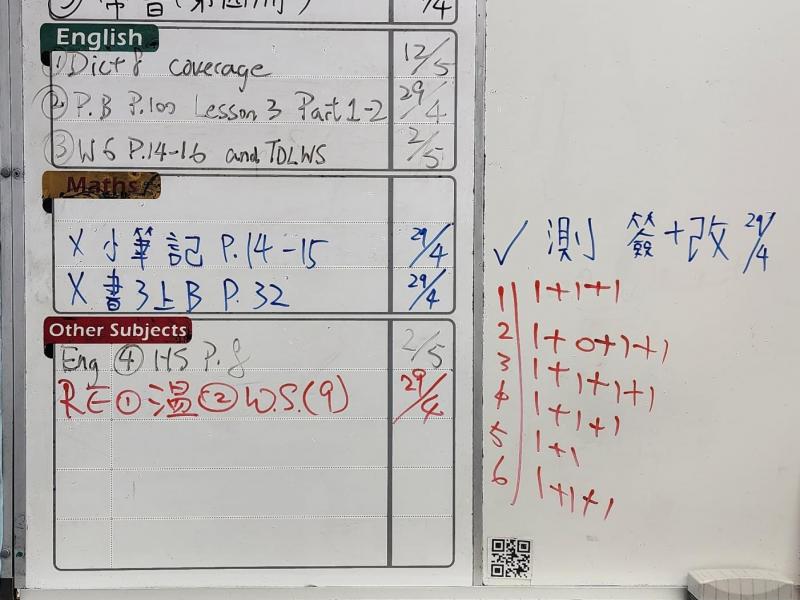 English
① Dict 8 coverage 12/5
② P.B P.100 Lesson 3 Part 1-2 29/4
③ WS P.14-16 and TDLWS 2/5
Maths
X 小筆記 P.14-15 29/4
X 書3上B P.32 29/4
✓ 測 簽+改 29/4
Other Subjects
Eng ④ HS P.8 2/5
RE ① 温 ② W.S.(9) 29/4
1 1+1+1
2 1+0+1+1
3 1+1+1+1
4 1+1+1
5 1+1
6 1+1+1